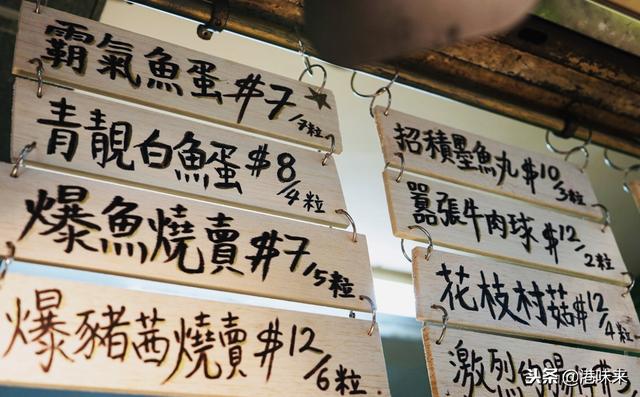 霸氣魚蛋 $7/7粒
青靚白魚蛋 $8/4粒
爆魚燒賣 $7/5粒
爆豬茜燒賣 $12/6粒
招積墨魚丸 $10/3粒
囂張牛肉球 $12/2粒
花枝村菇 $12/4粒
激烈
头条 @港味来